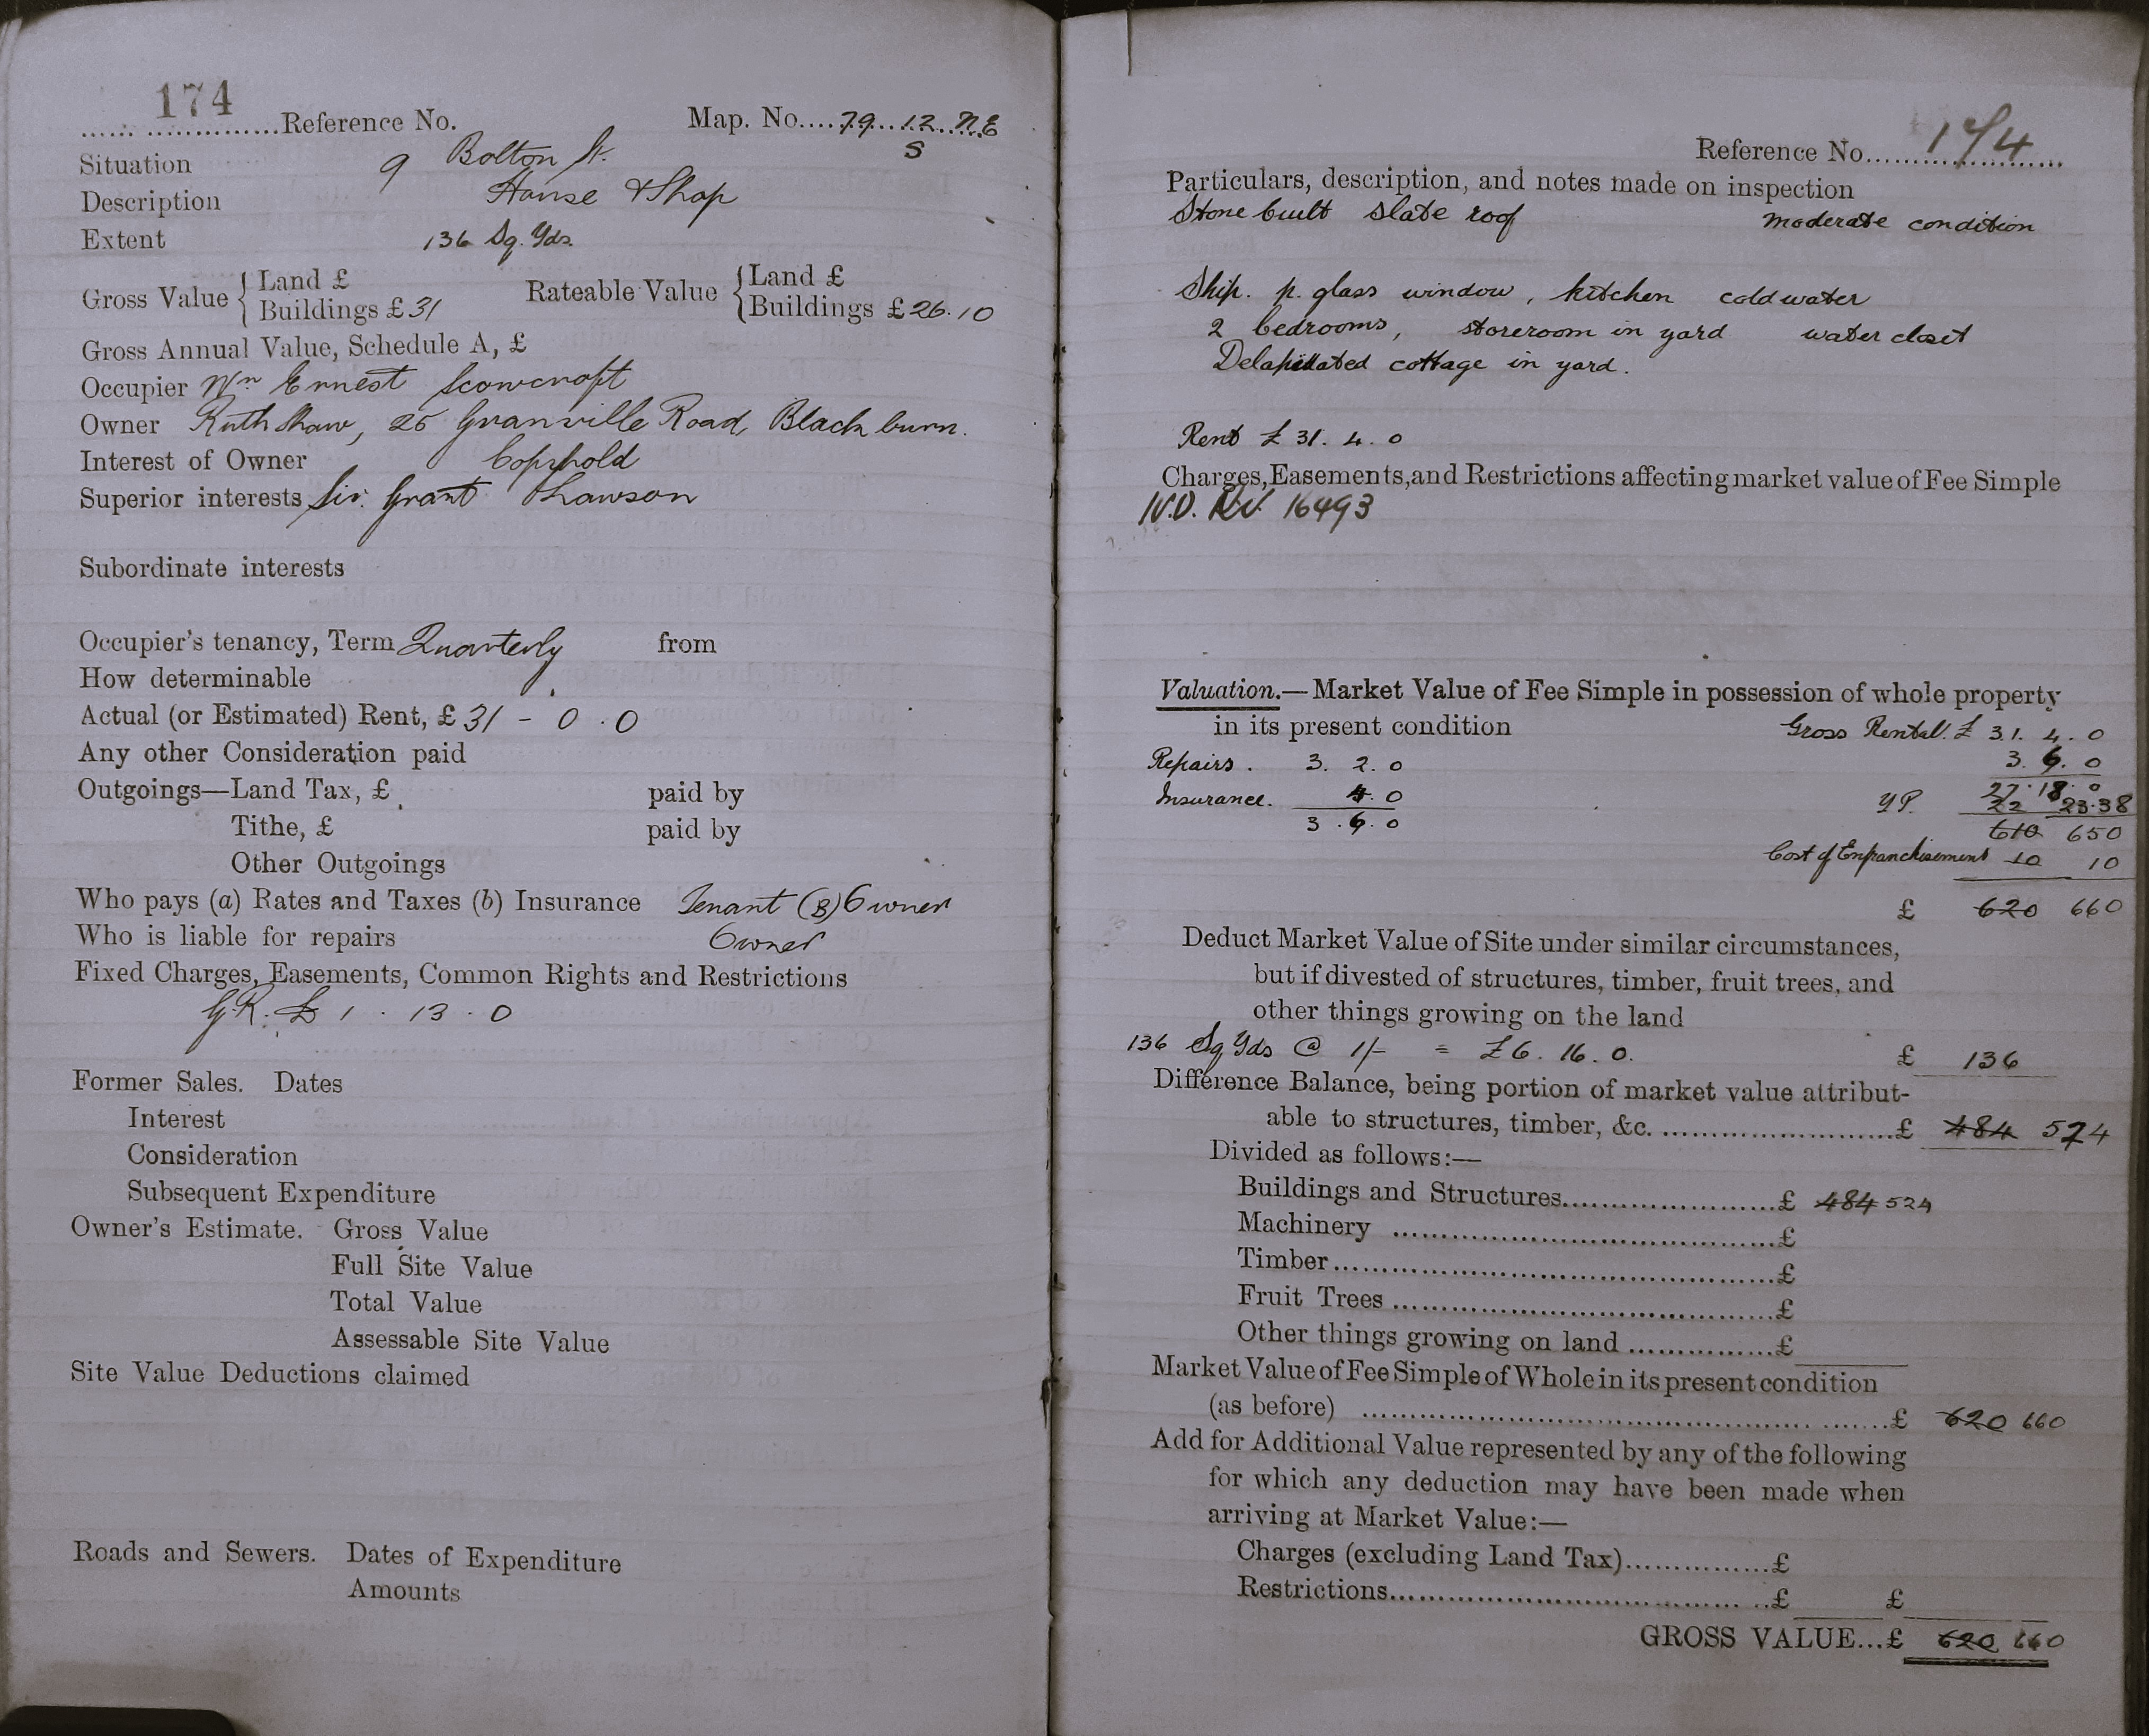 174
Reference No. Map. No. 79 12 NE
S
Situation 9 Bolton St.
Description House & Shop
Extent 136 Sq. Yds.
Gross Value { Land £
Buildings £31
Rateable Value { Land £
Buildings £26.10
Gross Annual Value, Schedule A, £
Occupier Wm Ernest Scowcroft
Owner Ruth Shaw, 25 Granville Road, Blackburn.
Interest of Owner Copyhold
Superior interests Sir. Grant Lawson
Subordinate interests
Occupier's tenancy, Term Quarterly from
How determinable
Actual (or Estimated) Rent, £31 - 0 . 0
Any other Consideration paid
Outgoings—Land Tax, £ paid by
Tithe, £ paid by
Other Outgoings
Who pays (a) Rates and Taxes (b) Insurance Tenant (B) Owner
Who is liable for repairs Owner
Fixed Charges, Easements, Common Rights and Restrictions
G.R. £ 1 . 13 . 0
Former Sales. Dates
Interest
Consideration
Subsequent Expenditure
Owner's Estimate. Gross Value
Full Site Value
Total Value
Assessable Site Value
Site Value Deductions claimed
Roads and Sewers. Dates of Expenditure
Amounts
Reference No. 174
Particulars, description, and notes made on inspection
Stone built slate roof moderate condition
Ship. p. glass window, kitchen cold water
2 bedrooms, storeroom in yard water closet
Delapidated cottage in yard.
Rent £ 31. 4. 0
Charges, Easements, and Restrictions affecting market value of Fee Simple
16493
Valuation.—Market Value of Fee Simple in possession of whole property
in its present condition Gross Rental. £ 31. 4. 0
Repairs. 3. 2. 0 3. 6. 0
Insurance. 4. 0 27. 18. 0
3. 6. 0 YP. 22 23.38
610 650
Cost of Enfranchisement 10 10
£ 620 660
Deduct Market Value of Site under similar circumstances,
but if divested of structures, timber, fruit trees, and
other things growing on the land
136 Sq Yds @ 1/- = £6. 16. 0. £ 136
Difference Balance, being portion of market value attribut-
able to structures, timber, &c. £ 484 524
Divided as follows:—
Buildings and Structures £ 484 524
Machinery £
Timber £
Fruit Trees £
Other things growing on land £
Market Value of Fee Simple of Whole in its present condition
(as before) £ 620 660
Add for Additional Value represented by any of the following
for which any deduction may have been made when
arriving at Market Value:—
Charges (excluding Land Tax) £
Restrictions £ £
GROSS VALUE...£ 620 660